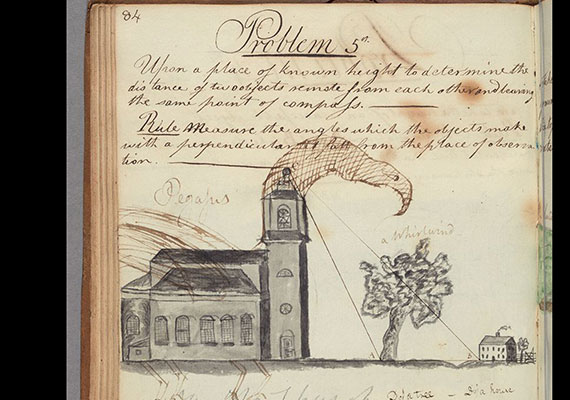 84
Problem 5th
Upon a place of known height to determine the
distance of two objects remote from each other and bearing
the same point of compass.
Rule Measure the angles which the objects make
with a perpendicular let fall from the place of observa
tion.
Pegasus
a whirlwind
A
B
a tree — a house